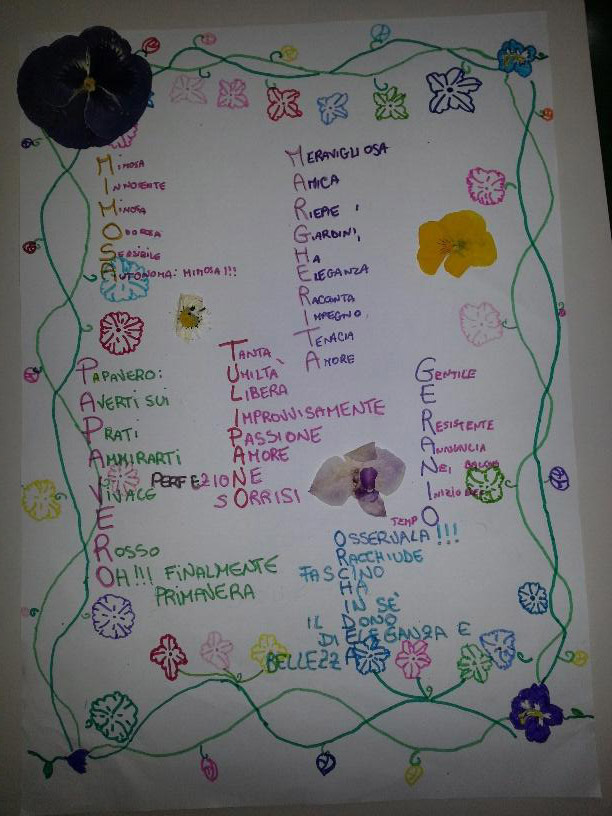 MIMOSA
INNOCENTE
MIMOSA
ODOROSA
SENSIBILE
AUTONOMA: MIMOSA!!!
MERAVIGLIOSA
AMICA
RIEPIE
GIARDINI,
HA
ELEGANZA
RACCONTA
IMPEGNO,
TENACIA
AMORE
PAPAVERO:
AVERTI SUI
PRATI
AMMIRARTI
VIVACE
E
ROSSO
OH!!! FINALMENTE
PRIMAVERA
TANTA
UMILTÀ
LIBERA
IMPROVVISAMENTE
PASSIONE
AMORE
PERFEZIONE
SORRISI
GENTILE
E
RESISTENTE
ANNUNCIA
NEI
INIZIO DEL
TEMPO
OSSERVALA!!!
RACCHIUDE
FASCINO
HA
IN SÉ
IL DONO
DI ELEGANZA E
BELLEZZA